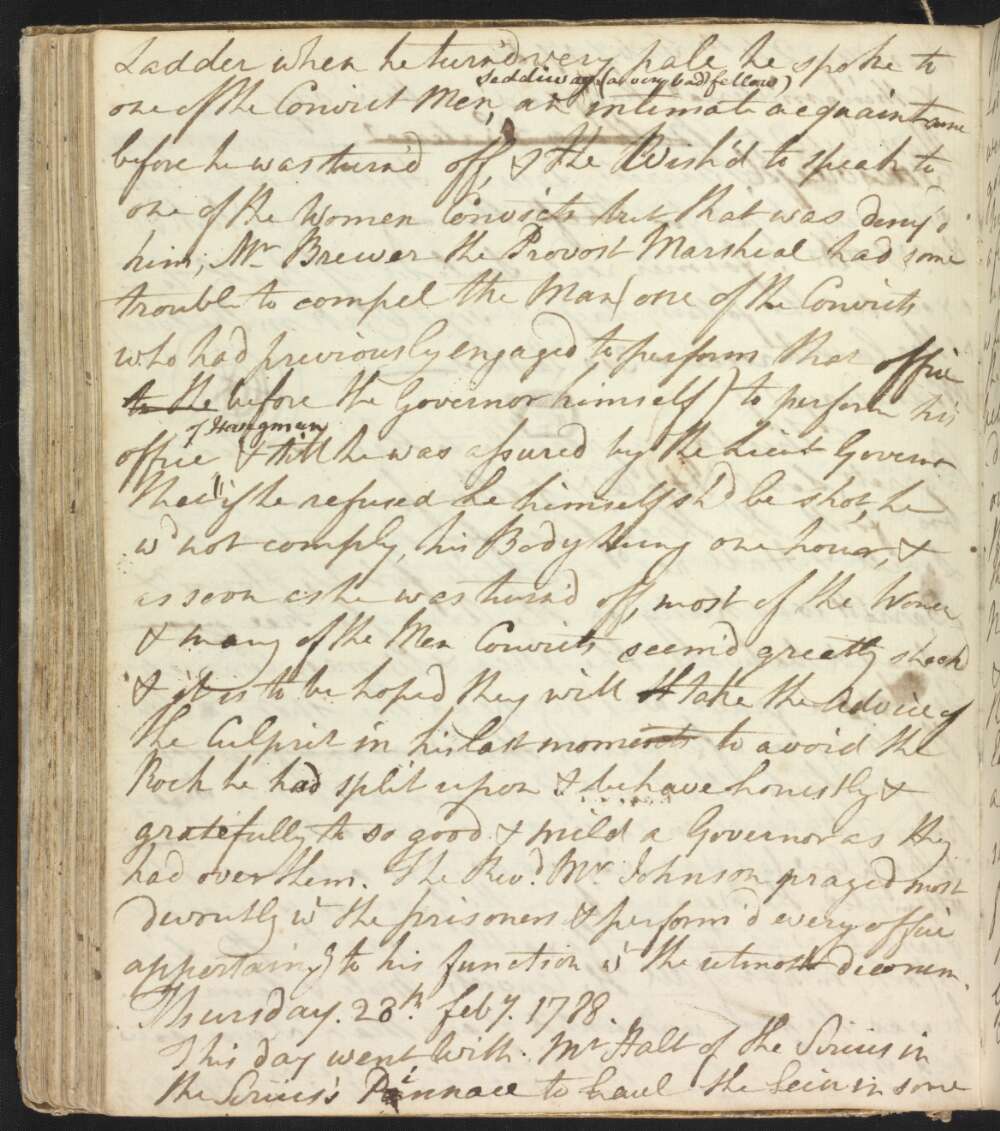 Ladder when he turn'd very pale he spoke to
Seddiway (a very bad fellow)
one of the Convict Men, an intimate acquaintance
before he was turn'd off, & the Wish'd to speak to
one of the Women Convicts but that was deny'd
him; Mr Brewer the Provost Marsheal had some
trouble to compel the Man (one of the Convicts
who had previously engaged to perform that office
to the before the Governor himself) to perform his
of Hangman
office & till he was assured by the Lieut Governor
that if he refused he himself shd be shot, he
wd not comply, his Body hung one hour, &
as soon as he was turn'd off, most of the Women
& many of the Men Convicts seem'd greatly shock'd
& it is to be hoped they will take the advice of
the Culprit in his last moments to avoid the
Rock he had split upon & behave honestly &
gratefully to so good & mild a Governor as they
had over them. The Revd. Mr. Johnson prayed most
devoutly wt the prisoners & perform'd every office
appertaing to his function wt the utmost decorum.
Thursday. 28th. feby. 1788.
This day went with Mr Hall of the Sirius in
the Sirius's Pinnace to haul the Sein in some